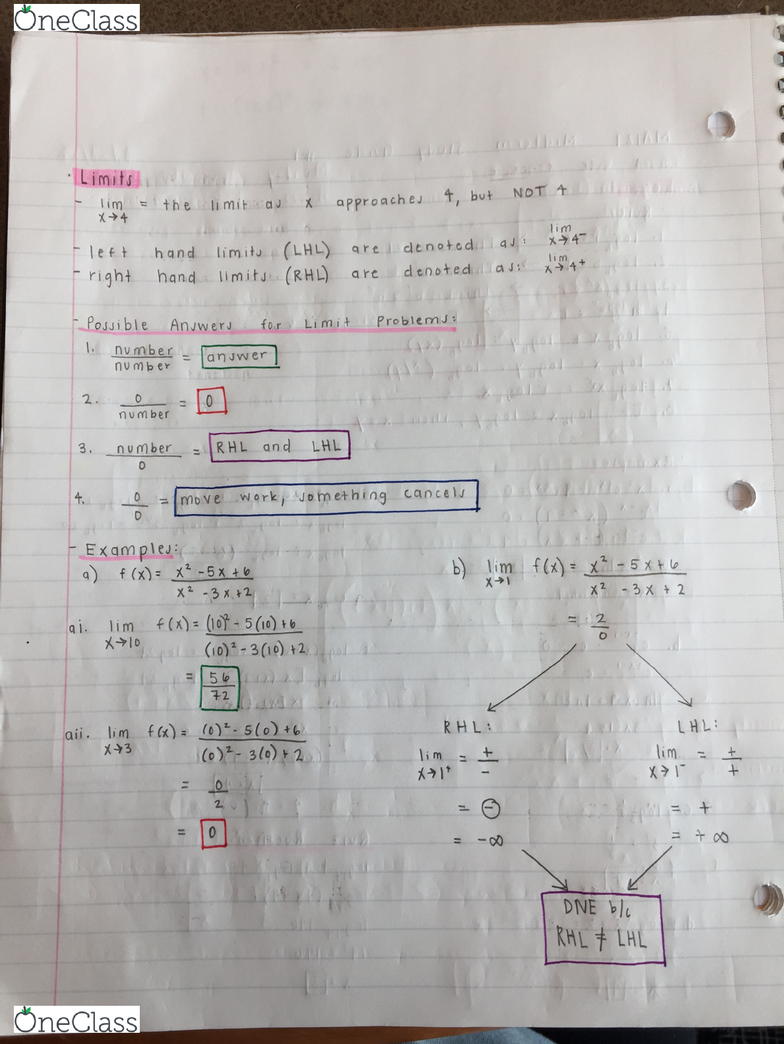 OneClass
· Limits
- lim x→4 = the limit as x approaches 4, but NOT 4
- left hand limits (LHL) are denoted as: lim x→4⁻
- right hand limits (RHL) are denoted as: lim x→4⁺
- Possible Answers for Limit Problems:
1. number/number = answer
2. 0/number = 0
3. number/0 = RHL and LHL
4. 0/0 = move work, something cancels
- Examples:
a) f(x) = x² - 5x + 6 / x² - 3x + 2
ai. lim x→10 f(x) = (10)² - 5(10) + 6 / (10)² - 3(10) + 2
= 56/72
aii. lim x→3 f(x) = (0)² - 5(0) + 6 / (0)² - 3(0) + 2
= 0/2
= 0
b) lim x→1 f(x) = x² - 5x + 6 / x² - 3x + 2
= 2/0
RHL:
lim x→1⁺ = +/-
= ⊖
= -∞
LHL:
lim x→1⁻ = +/+
= +
= +∞
DNE b/c
RHL ≠ LHL
OneClass